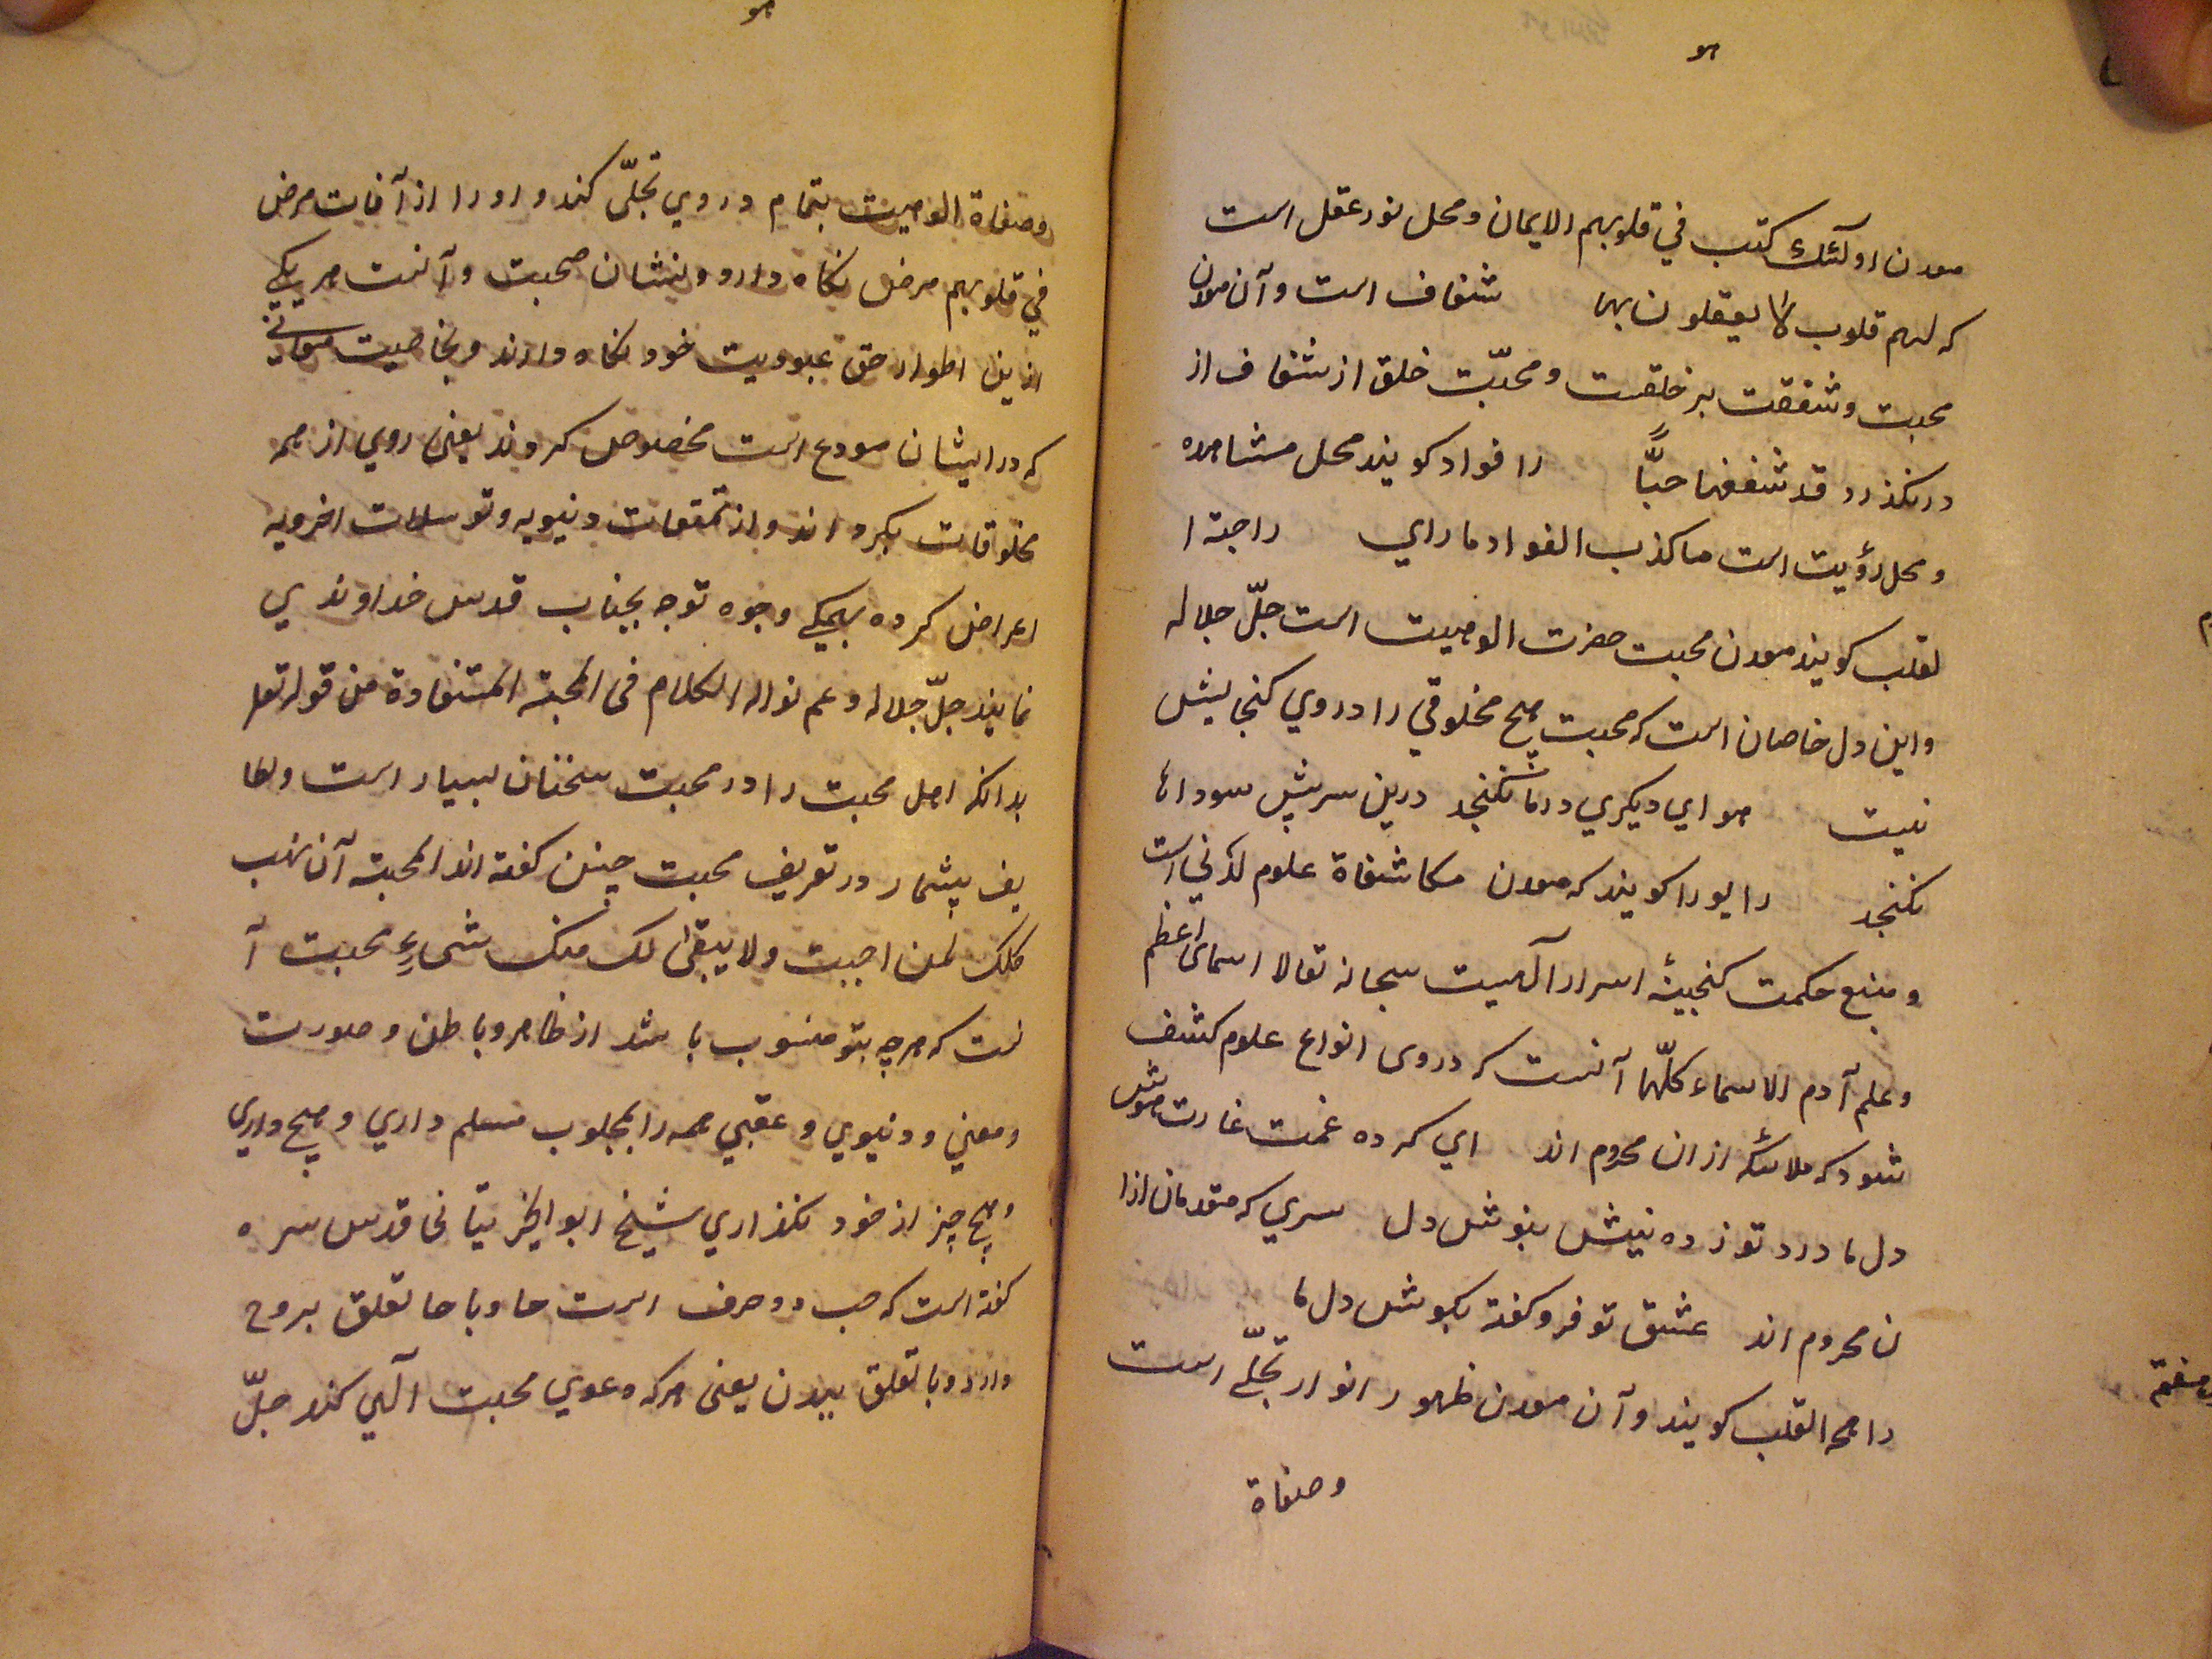 هو
معدن اولٓئك كتب في قلوبهم الايمان ومحل نور عقل است
كه لهم قلوب لا يعقلون بها شغاف است وآن معدن
محبت وشفقت بر خلقست ومحبّت خلق از شغاف از
در نكذرد قد شغفها حبًّا را فواد كويند محل مشاهده
ومحل رؤيت است ما كذب الفواد ما راي را حبة ا
لقلب كويند معدن محبت حضرت الوهيت است جلّ جلاله
واين دل خاصان است كه محبت هيچ مخلوقي را در وي كنجايش
نيست هواي ديكري در ما نكنجد درين سر بيش سوداها
نكنجد را سويدا كويند كه معدن مكاشفاة علوم لدنّي است
ومنبع حكمت كنجينۀ اسرار آلهيت سبحانه تعالا اسماى اعظم
وعلم آدم الاسماء كلّها آنست كه در وى انواع علوم كشف
شود كه ملائكه از ان محروم اند اي كرده غمت غارت هوش
دل ما درد تو زده نيش بنوش دل سري كه مقدسان ازا
ن محروم اند عشق تو فرو كفته بكوش دل ما
را مهجة القلب كويند وآن معدن ظهور انوار تجلّي است
وصفاة
هو
وصفاة الوهيت بتمام در وي تجلّى كند و او را از آفات مرض
في قلوبهم مرض نكاه دارد ونشان صحبت وآنست هر يكي
ازين اطوار حق عبوديت خود نكاه دارند وبخاصيت معانئ
كه در ايشان مودع است مخصوص كردند يعنى روي از همه
مخلوقات بكرداند واز تمتعات دنيويه وتوسلات اخرويه
اعراض كرده بهمكي وجوه توجه بجناب قدس خداوندي
نمايند جلّ جلاله وعم نواله الكلام فى المحبة المستفادة من قوله تعل
بدانكه اهل محبت را در محبت سخنان بسيار است ولطا
يف بيشمار در تعريف محبت چنين كفته اند المحبة آن تهب
كلك لمن احببت ولا يبقى لك منك شىءٍ محبت آ
نست كه هرچه بتو منسوب باشد از ظاهر وباطن وصورت
ومعني ودنيوي وعقبي همه را بمحبوب مسلم داري وهيچ داري
وهيچ چيز از خود نكذاري شيخ ابو الخير تيتانى قدس سره
كفته است كه حب دو حرف است حا وبا حا تعلق بروح
دارد وبا تعلق ببدن يعنى هركه دعوي محبت آلهي كند جلّ